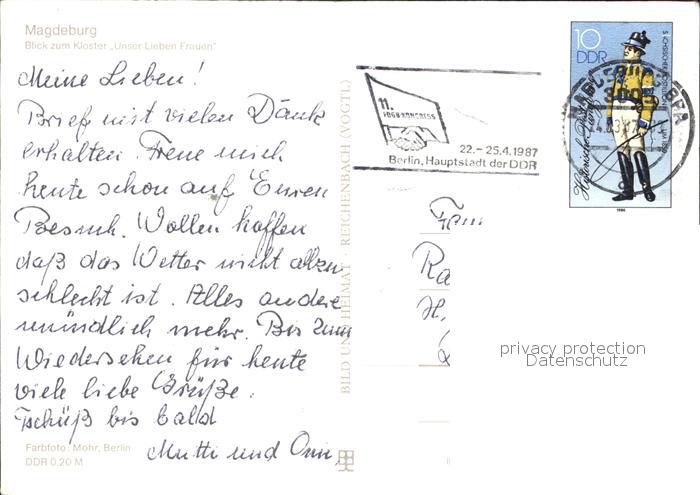 Magdeburg
Blick zum Kloster „Unser Lieben Frauen"
Meine Lieben!
Brief mit vielen Dank
erhalten. Freue mich
heute schon auf Euren
Besuch. Wollen hoffen
daß das Wetter nicht allzu
schlecht ist. Alles andere
mündlich mehr. Bis zum
Wiedersehen für heute
viele liebe Grüße.
Tschüß bis bald
Mutti und Omi,
Farbfoto: Mohr, Berlin
DDR 0,20 M
BILD UND HEIMAT · REICHENBACH (VOGTL)
11.
FDGB-KONGRESS
22.–25.4.1987
Berlin, Hauptstadt der DDR
10
DDR
Historische
1986
Fam
Ra
H,
privacy protection
Datenschutz